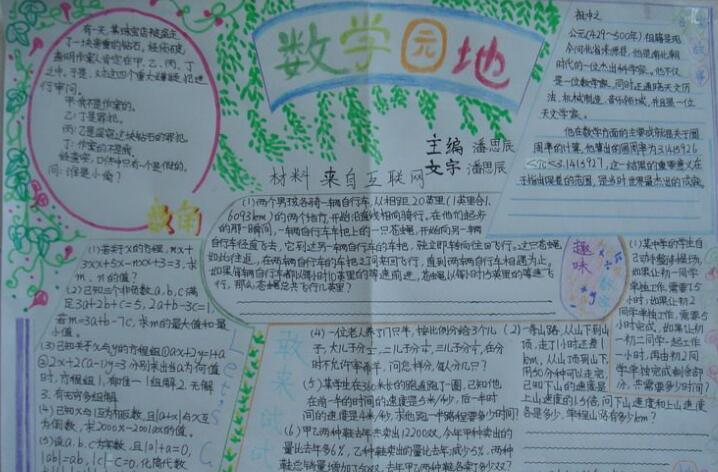 数学园地
主编 潘思辰
文字 潘思辰
材料 来自互联网
有一天,某珠宝店被盗走
了一块贵重的钻石。经侦破,
查明作案人肯定在甲、乙、丙、丁
之中。于是,对这四个重大嫌疑犯进
行审问。
甲:我不是作案的。
乙:丁是罪犯。
丙:乙是盗窃这块钻石的罪犯
丁:作案的不是我。
经查实,四个人中只有一个是假的。
问:谁是小偷?
祖冲之
公元(429~500年)祖籍是现
今河北省涞源县,他是南北朝
时代的一位杰出科学家。他不仅
是一位数学家,同时还通晓天文历
法、机械制造、音乐领域,并且是一位
天文学家。
他在数学方面的主要成就是关于圆
周率的计算,他算出的圆周率为3.1415926
<π<3.1415927,这一结果的重要意义在
于指出误差的范围,是当时世界最杰出的成就。
(1)两个男孩各骑一辆自行车,从相距20英里(1英里合1.
6093km)的两个地方,开始沿直线相向骑行。在他们起步
的那一瞬间,一辆自行车车把上的一只苍蝇,开始向另一辆
自行车径直飞去,它到达另一辆自行车的车把,就立即转向往回飞行。这只苍蝇
如此往返,在两辆自行车的车把之间来回飞行,直到两辆自行车相遇为止。
如果每辆自行车都以每小时10英里的等速前进,苍蝇以每小时15英里的等速飞
行,那么,苍蝇总共飞行几英里?
趣味
(1)若关于x的方程,mx+
3xx+5x-nxx+3=3,求
m、n的值?
(2)已知三个非负数a,b,c满
足3a+2b+c=5,2a+b-3c=1,
若m=3a+b-7c,求m的最大值和最
小值。
(3)已知关于x与y的方程组①ax+2y=1+a
②2x+2(a-1)y=3 分别求出当a为何值
时,方程组1.有唯一1组解2.无解
3.有无穷多组解
(4)已知x与1互为倒数,且|a+x|与x互
为倒数,求2000x-2001ax的值。
(5)设a,b,c为实数,且|a|+a=0,
|ab|=ab,|c|-c=0,化简代数
(4)一位老人养了17只羊,按比例分给3个儿
子,大儿子分1/2,二儿子分1/3,三儿子分1/9,在分
时不允许宰杀羊,问怎样分,每人分几只?
(5)某学生在360米长的跑道跑了一圈,已知他
在前一半的时间的速度是5米/秒,后一半时
间的速度是4米/秒,求他跑一半路程要多少时间?
(6)甲乙两种鞋去年共卖出12200双,今年甲种卖出的
量比去年多6%,乙种鞋卖出的量比去年减少5%,两种
鞋总销量增加了50双,去年甲乙两种鞋各卖了多少双?
(2)一条山路,从山下到山
顶,走了1小时还差1
km,从山顶到山下,
用50分钟可以走完,
已知下山的速度是
上山速度的1.5倍,问下山速度和上山速度
各是多少,单程山路有多少km?
(1)某中学的学生自
己动手整修操场,
如果让初一同学
单独工作,需要7.5
小时;如果让初二
同学单独工作,需要5
小时完成,如果让初
一初二同学一起工作
一小时,再由初二同
学单独完成剩余部
分,共需要多少时间?
Let's
敢来试试